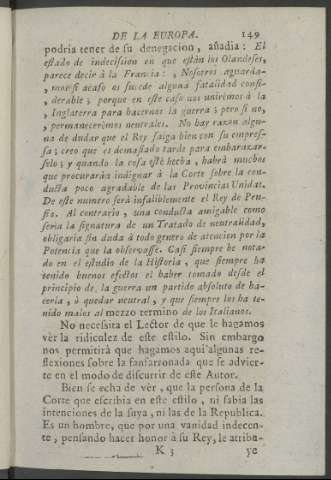 DE LA EUROPA. 149
podria tener de su denegacion, añadia: El
estado de indecision en que están los Olandeses,
parece decir à la Francia: , Nosotros aguarda-
, mos si acaso os sucede alguna fatalidad consi-
, derable; porque en este caso nos uniremos à la
, Inglaterra para hacernos la guerra; pero si no,
, permaneceremos neutrales. No hay razon algu-
na de dudar que el Rey salga bien con su empres-
sa; creo que es demasiado tarde para embarazar-
selo; y quando la cosa esté hecha, habrá muchos
que procurarán indignar à la Corte sobre la con-
ducta poco agradable de las Provincias Unidas.
De este numero será infaliblemente el Rey de Pru-
sia. Al contrario, una conducta amigable como
seria la signatura de un Tratado de neutralidad,
obligaria sin duda à todo genero de atencion por la
Potencia que la observasse. Casi siempre he nota-
do en el estudio de la Historia, que siempre ha
tenido buenos efectos el haber tomado desde el
principio de la guerra un partido absoluto de ha-
cerla, ò quedar neutral, y que siempre los ha te-
nido malos al mezzo termino de los Italianos.
No necessita el Lector de que le hagamos
vèr la ridiculez de este estilo. Sin embargo
nos permitirà que hagamos aqui algunas re-
flexiones sobre la fanfarronada que se advier-
te en el modo de discurrir de este Autor.
Bien se echa de vèr, que la persona de la
Corte que escribia en este estilo, ni sabia las
intenciones de la suya, ni las de la Republica.
Es un hombre, que por una vanidad indecen-
te, pensando hacer honor à su Rey, le atribu-
K 3 ye